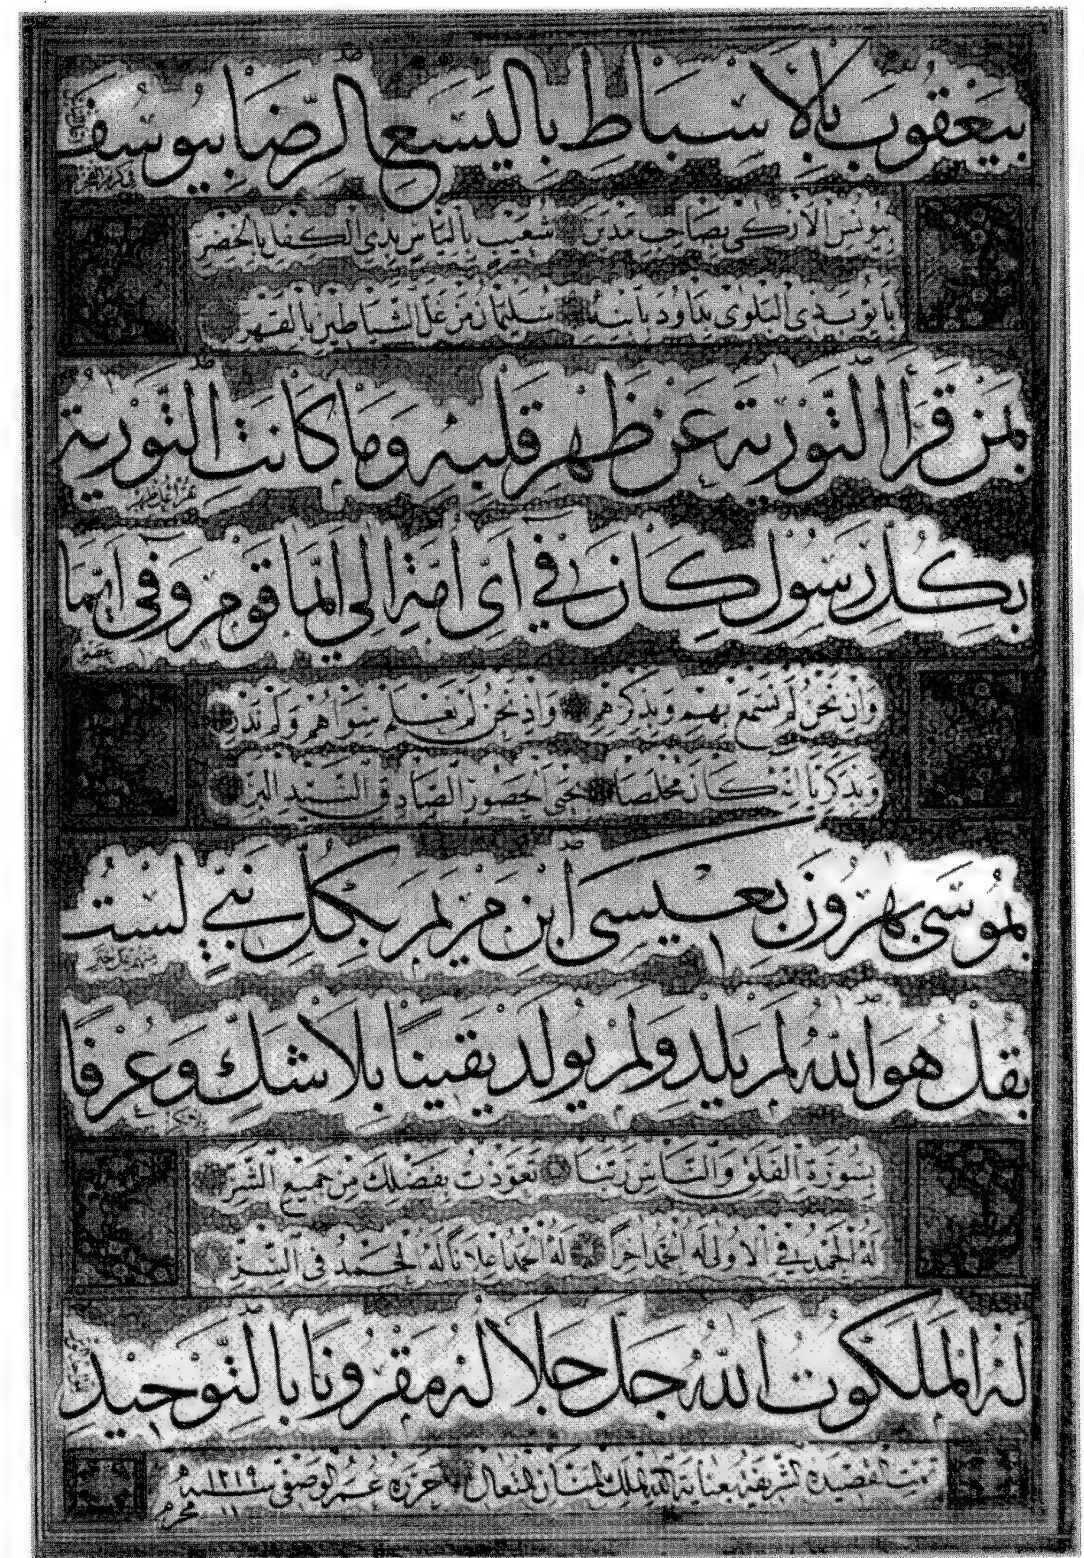 بيعقوب بالاسباط باليسع الرضا بيوسف
بيونس الاركى بصاحب مدين شعيب بالياس بذي الكفل بالخضر
بايوب ذي البلوى بداود بابنه سليمان من غل الشياطين بالقهر
بمن قرأ التورية عن ظهر قلبه وما كانت التورية
بكل رسول كان في أي أمة إلى أيما قوم وفي أيما
وان نحن لم نسمع بهم وبذكرهم وان نحن لم نعلم سواهم ولم ندر
وبذكريا انه كان مخلصا بيحيى الحصور الصادق السيد البر
بموسى بهرون بعيسى ابن مريم بكل نبي لست
بقل هو الله لم يلد ولم يولد يقينا بلا شك وعرفا
بسورة الفلق والناس ربنا تعوذت بفضلك من جميع الشر
له الحمد في الاولى له الحمد آخرا له الحمد اعلانا له الحمد في السر
له الملكوت الله جل جلاله مقرونا بالتوحيد
تمت القصيدة الشريفة بعناية الله الملك المنان المتعال حرره عمر الوصفي سنة ١٢١٩ محرم